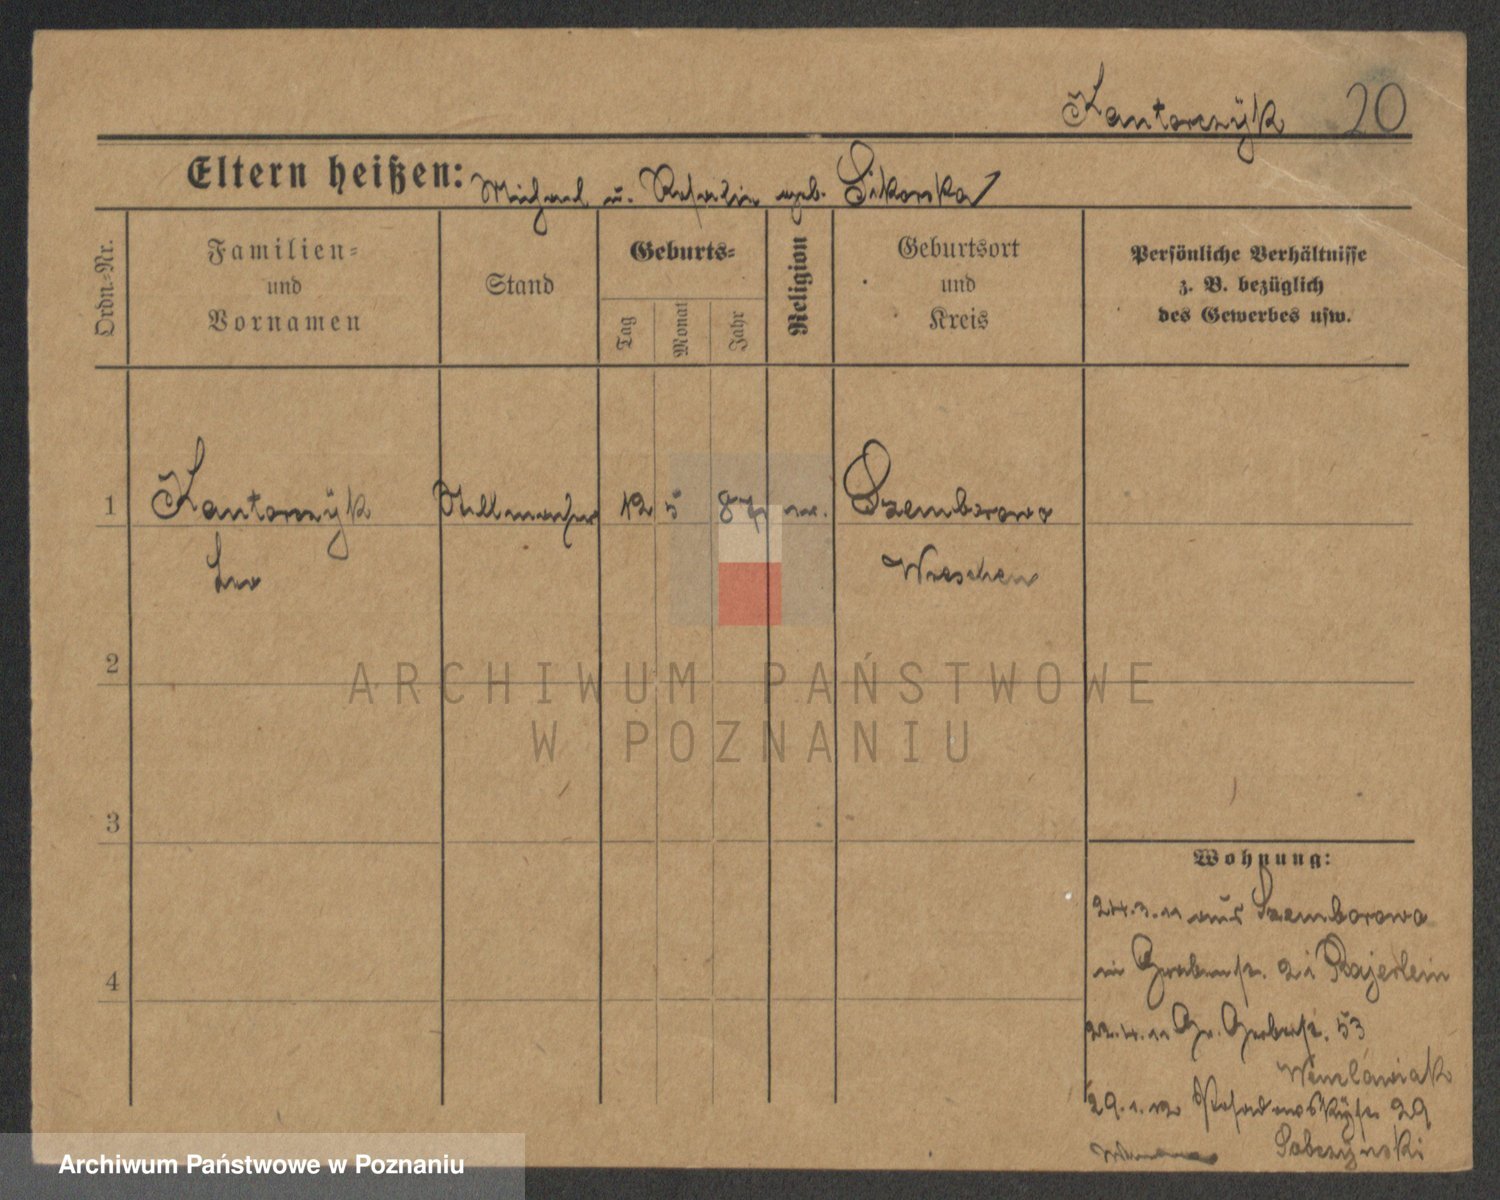 Kantorczÿk 20
Eltern heißen: Michael u. Rosalie geb. Sikorska
Ordn.-Nr.
Familien-
und
Vornamen
Stand
Geburts-
Tag
Monat
Jahr
Religion
Geburtsort
und
Kreis
Persönliche Verhältnisse
z. B. bezüglich
des Gewerbes usw.
1 Kantorczÿk Stellmacher 12 5 87 Szemborowo
Leo Wreschen
2
ARCHIWUM PAŃSTWOWE
W POZNANIU
3
Wohnung:
24.3.11 aus Szemborowo
in Grabenstr. 2 i Bajerlein
22.4.11 Gr. Gerberstr. 53
Wenclawiak
29.1.12 Posadowskÿstr 29
Sobczynski
4
Archiwum Państwowe w Poznaniu